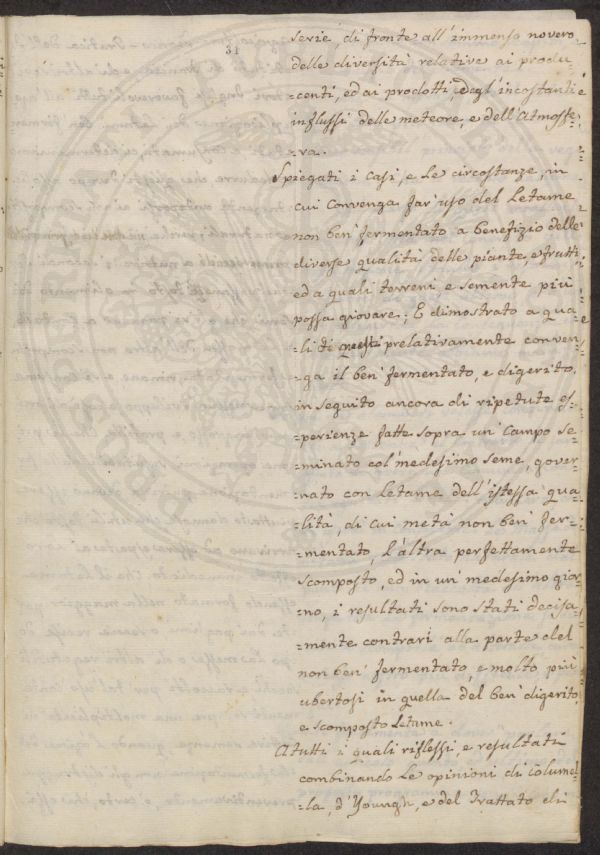 31
serie, di fronte all'immenso novero
delle diversità relative ai produ-
-centi, ed ai prodotti, e degl'incostanti
influssi delle meteore, e dell'Atmosfe-
-ra.
Spiegati i Casi, e Le circostanze, in
cui Convenga far' uso del Letame
non ben' fermentato a benefizio delle
diverse qualità delle piante, e frutti
ed a quali terreni e semente più
possa giovare; E dimostrato a qua-
-li di questi prelativamente conven-
-ga il ben' fermentato, e digerito,
in seguito ancora di ripetute es-
-perienze fatte sopra un' Campo se-
-minato col' medesimo seme, gover-
-nato con Letame dell'istessa qua-
-lità, di cui metà non ben' fer-
-mentato, l'altra perfettamente
scomposto, ed in un' medesimo gior-
-no, i resultati sono stati decisa-
-mente contrari alla parte del
non ben' fermentato, e molto più
ubertosi in quella del ben' digerito,
e scomposto Letame.
A tutti i quali riflessi, e resultati
combinando Le opinioni di Colume-
-la, d'Youngh, e del Trattato di